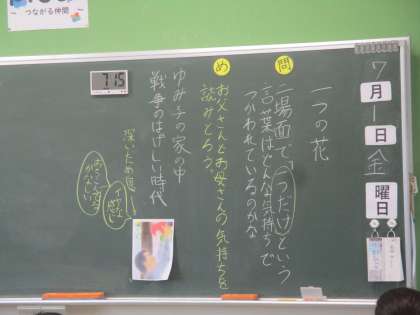 つながる仲間
715
7月1日金曜日
一つの花
問
二場面で、「一つだけ」という
言葉はどんな気持ちで
つかわれているのかな
め
お父さんとお母さんの気持ちを
読みとろう。
ゆみ子の家の中
戦争のはげしい時代
深いため息